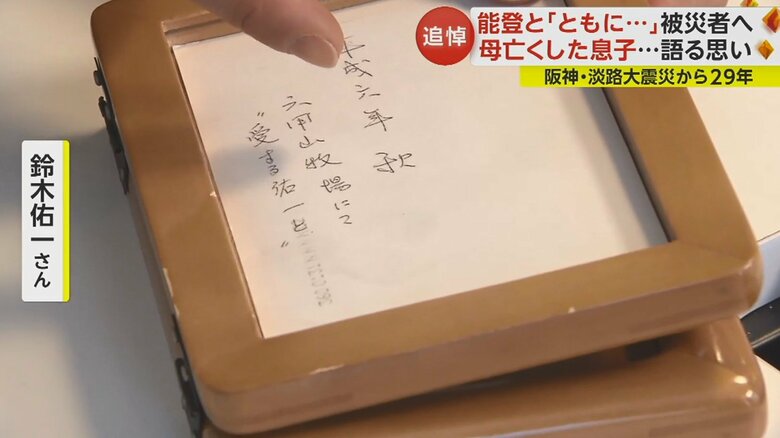 追悼
能登と「ともに…」被災者へ
母亡くした息子…語る思い
阪神・淡路大震災から29年
鈴木佑一さん
平成六年 秋
六甲山牧場にて
"愛する佑一と"